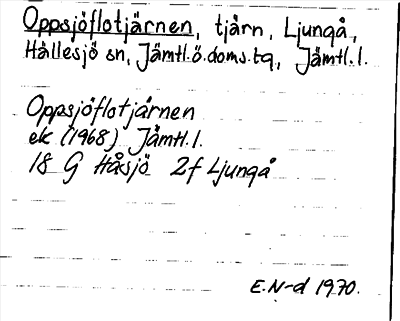 Oppsjöflotjärnen, tjärn, Ljungå,
Hållesjö sn, Jämtl.ö.doms.tg, Jämtl.l.
Oppsjöflotjärnen
ek (1968) Jämtl.l.
18 G Håsjö 2f Ljungå
E.N-d 1970.